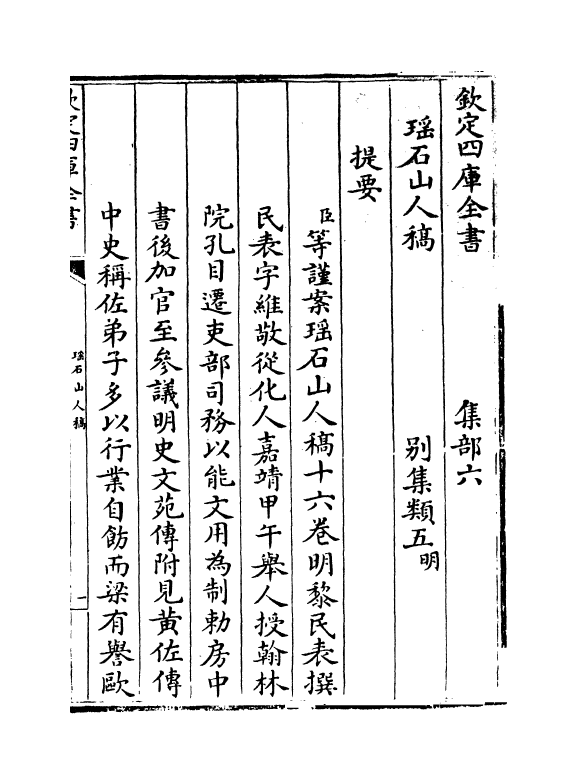 欽定四庫全書　集部六
瑶石山人稿　别集類五明
提要
臣等謹案瑶石山人稿十六卷明黎民表撰
民表字維敬從化人嘉靖甲午舉人授翰林
院孔目遷吏部司務以能文用為制勅房中
書後加官至參議明史文苑傳附見黄佐傳
中史稱佐弟子多以行業自飭而梁有譽歐
欽定四庫全書
瑶石山人稿
一